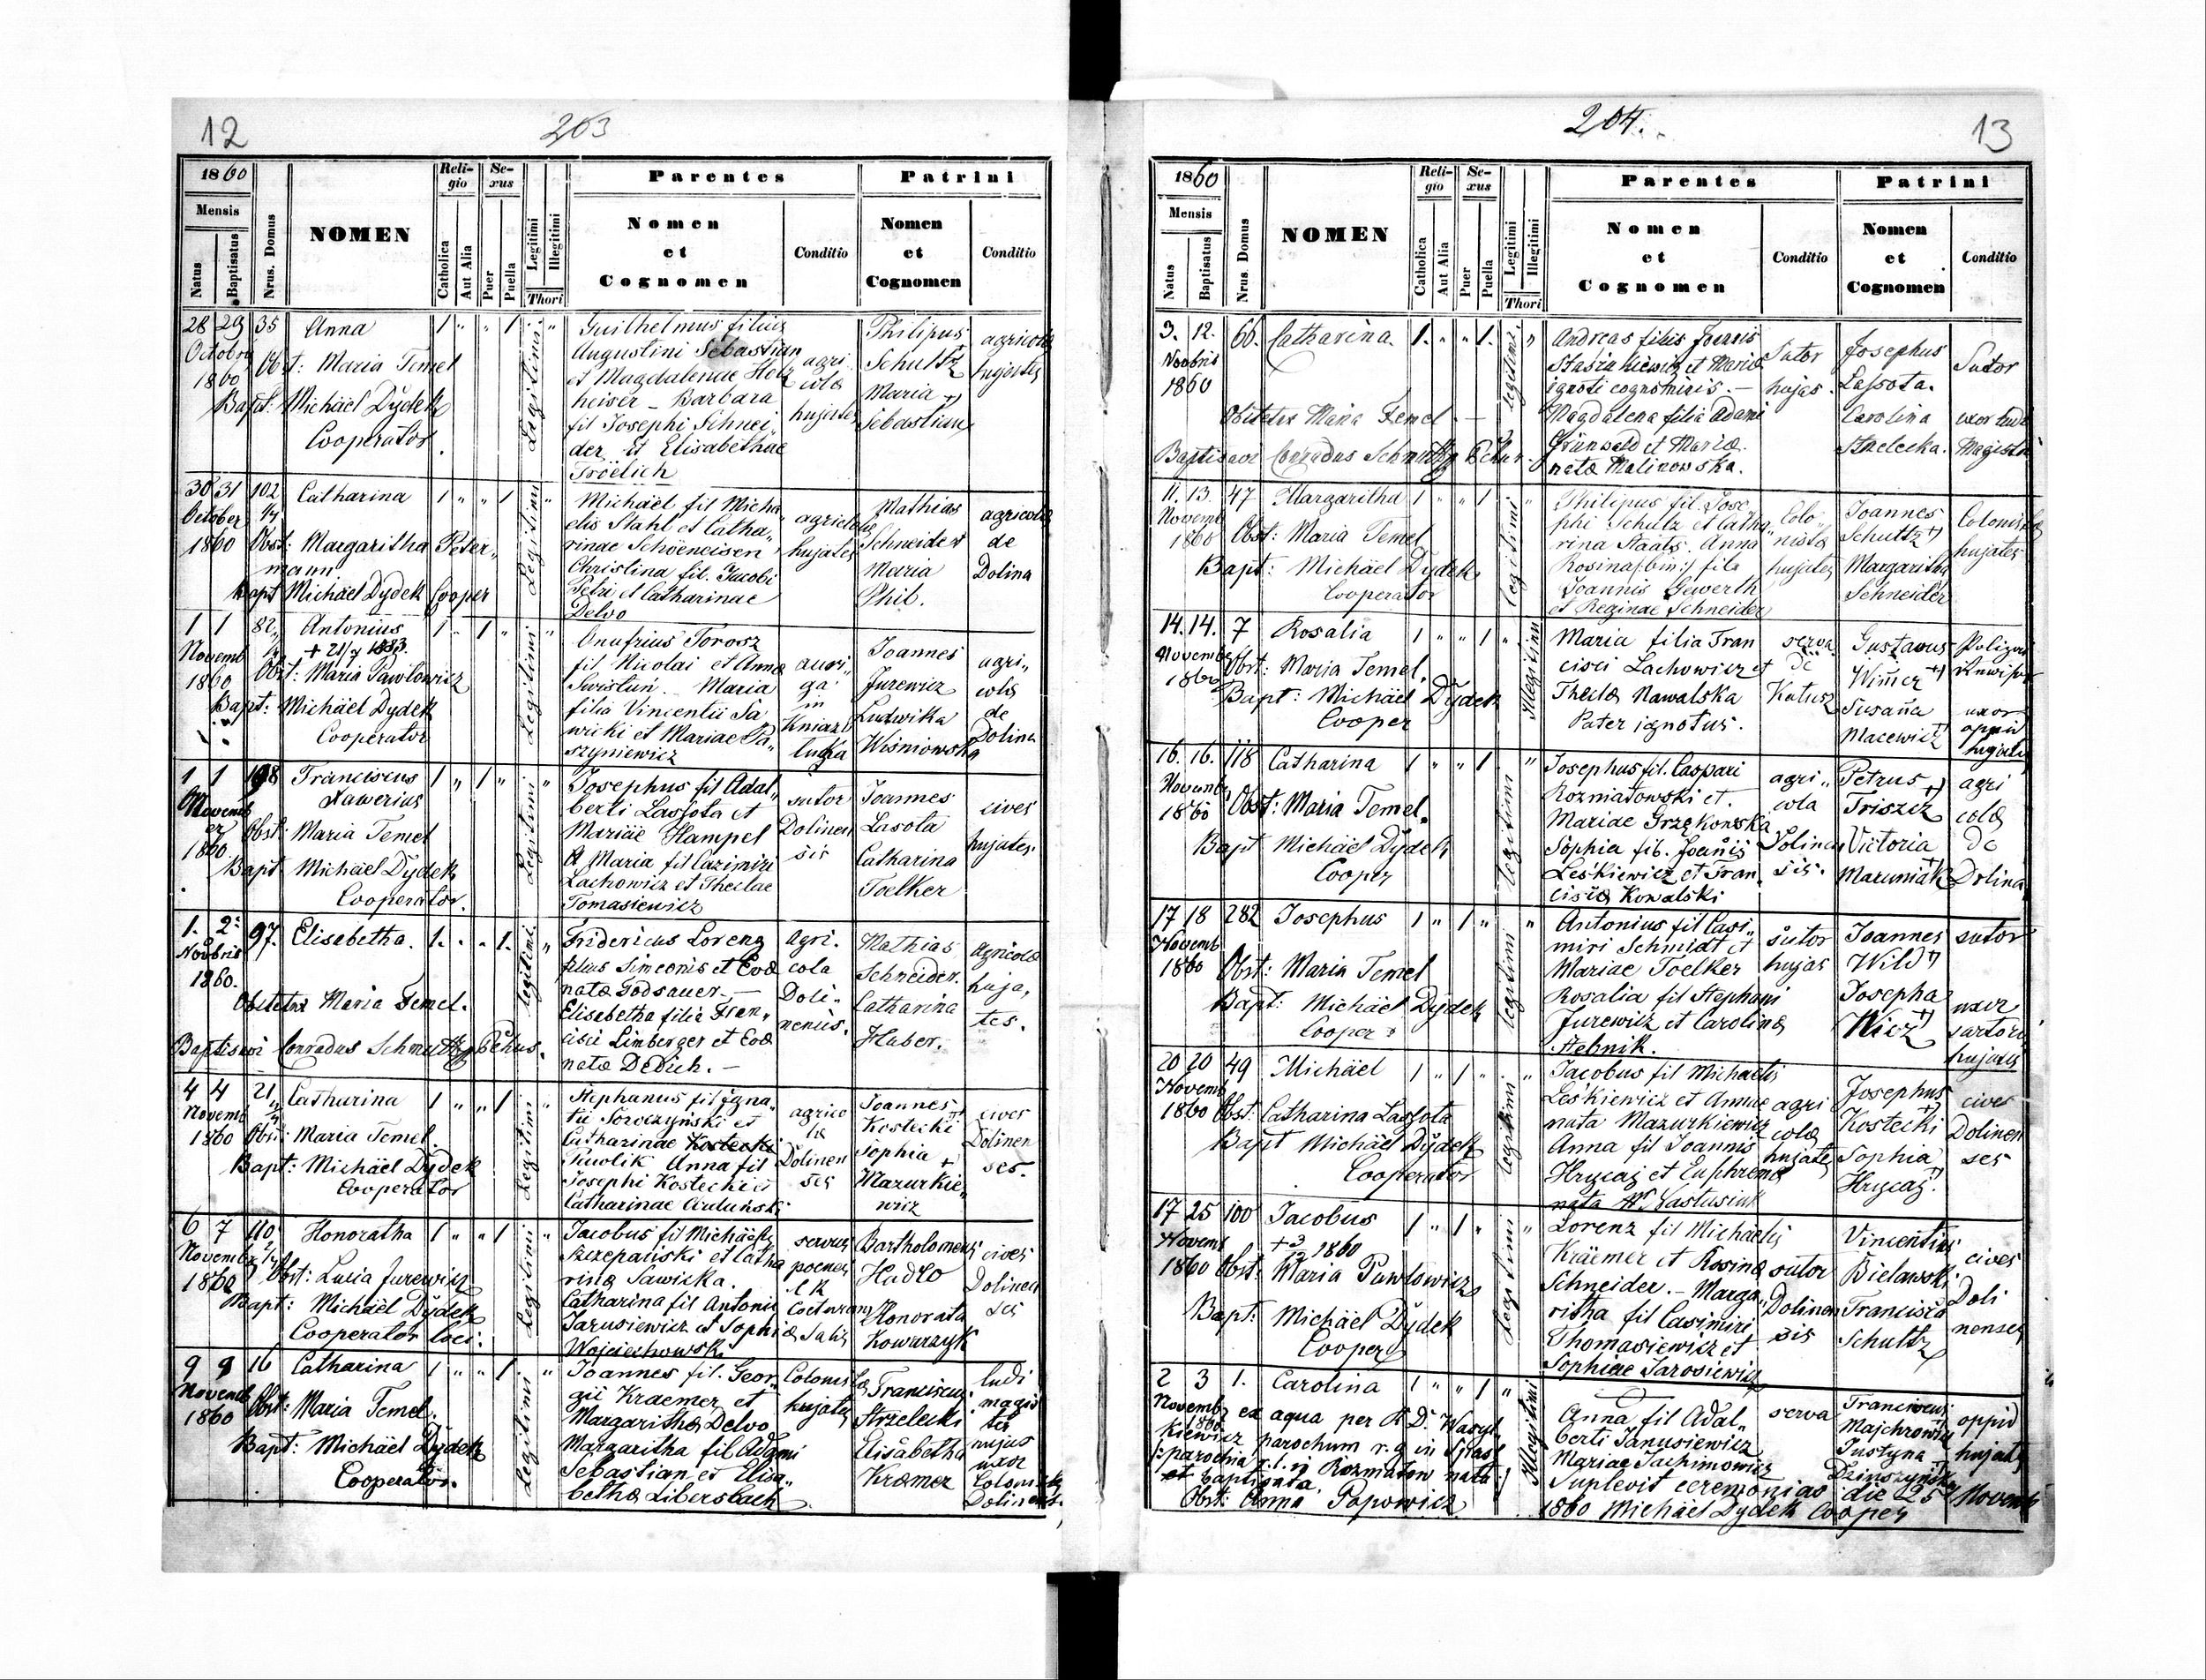 12
203
1860
Mensis
Natus
Baptisatus
Nrus. Domus
NOMEN
Reli-
gio
Catholica
Aut Alia
Se-
xus
Puer
Puella
Legitimi
Illegitimi
Thori
Parentes
Nomen
et
Cognomen
Conditio
Patrini
Nomen
et
Cognomen
Conditio
28 29 35 Anna 1 " " 1 "
Octobr
1860
Obst: Maria Temel
Bapt: Michäel Dydek
Cooperator
Legitimi
Guilhelmus filius
Augustini Sebastian
et Magdalenae Holz
heiser - Barbara
fil Josephi Schnei
der et Elisabethae
Fröelich
agri
colæ
hujates
Philipus
Schultz
Maria
Sebastian
agricolæ
hujates
30 31 102 Catharina 1 " " 1 "
October
1860
Obst: Margaritha Peter-
mann
Bapt Michäel Dydek Cooper
Legitimi
Michäel fil Micha
elis Stahl et Catha"
rinae Schöeneisen
Christina fil. Jacobi
Petri et Catharinae
Delvo
agricolæ
hujates
Mathias
Schneider
Maria
Phil.
agricolæ
de
Dolina
1 1 82 Antonius 1 " 1 " "
+ 21/7 1883.
Novemb
1860
Obst: Maria Pawlowicz
Bapt: Michäel Dydek
Cooperator
Legitimi
Onufrius Torosz
fil Nicolai et Annæ
Swistuń. Maria
filia Vincentii Sa
wicki et Mariae Pa"
szyniewicz
auri
ga
in
Kniazi
luka
Joannes
Jurewicz
Ludwika
Wisniowska
agri"
colæ
de
Dolina
1 1 198 Franciscus 1 " 1 " "
Xawerius
Novemb
er
1860
Obst: Maria Temel
Bapt Michäel Dydek
Cooperator.
Legitimi
Josephus fil Adal"
berti Lassota et
Mariäe Hampel
et Maria fil Cazimiri
Lachowicz et Theclae
Tomasiewicz
sutor
Dolinen
sis
Joannes
Lasota
Catharina
Toelker
cives
hujates.
1. 2. 97. Elisabetha. 1. " " 1. "
Novbris
1860.
Obstetrx Maria Temel.
Baptisavi Conradus Schmutky
legitimi
Fridericus Lorenz
filius Simeonis et Evæ
natæ Todsauer. -
Elisabetha filia Fran"
cisci Limberger et Evæ
natæ Dedich. -
Agri-
cola
Doli"
nensis.
Mathias
Schneider.
Catharina
Huber.
Agricolæ
huja,
tes.
4 4 21 Catharina 1 " " 1 "
Novemb
1860
Obst: Maria Temel.
Bapt: Michäel Dydek
Cooperator
Legitimi
Stephanus fil Igna"
tii Sowczyński et
Catharinae Kostecki
Pawlik Anna fil
Josephi Kostecki et
Catharinae
agrico
læ
Dolinen
ses
Joannes
Kostecki
Sophia
Mazurkie"
wicz
cives
Dolinen
ses.
6 7 110 Honoratha 1 " " 1 "
Novemb
1860
Obst: Lucia Jurewicz
Bapt: Michäel Dydek
Cooperator loci.
Legitimi
Jacobus fil Michäelis
Szczepański et Catha
rinæ Sawicka.
Catharina fil Antonii
Jarusiewicz et Sophi
æ Wojciechowski
servus
poenes
Bartholomeus
Hadło
Honorata
Kowarzyk
cives
Dolinen
ses
9 9 16 Catharina 1 " " 1 "
Novemb
1860
Obst: Maria Temel.
Bapt: Michäel Dydek
Cooperator.
Legitimi
Joannes fil. Geor"
gii Kraemer et
Margarithæ Delvo
Margaritha fil Adami
Sebastian et Elisa"
bethæ Libersbach
Colonistæ
hujates
Franciscus
Strzelecki
Elisabetha
Kræmer
ludi
magis
ter
hujus
uxor
Colonistæ
Dolinens.
204.
13
1860
Mensis
Natus
Baptisatus
Nrus. Domus
NOMEN
Reli-
gio
Catholica
Aut Alia
Se-
xus
Puer
Puella
Legitimi
Illegitimi
Thori
Parentes
Nomen
et
Cognomen
Conditio
Patrini
Nomen
et
Cognomen
Conditio
3. 12. 66. Catharina. 1. " " 1. "
Novbris
1860
Obstetrx Maria Temel. -
Baptisavi Conradus Schmutky
legitimi
Andreas filius Joannis
Stasinkiewicz et Mariæ
ignoti cognominis. -
Magdalena filia Adami
Grünwald et Mariæ
natæ Malinowska.
Sutor
hujas.
Josephus
Lassota.
Carolina
Strelecka.
Sutor
uxor ludi
Magistri
11. 13. 47 Margaritha 1 " " 1 "
Novemb
1860
Obst: Maria Temel
Bapt: Michäel Dydek
Cooperator
legitimi
Philipus fil Jose"
phi Schulz et Catha"
rina Staats. Anna
Rosina (bin:) fila
Joannis Gewerth
et Reginae Schneider
Colo"
nistæ
hujates
Joannes
Schultz
Margaritha
Schneider
Colonistæ
hujates
14. 14. 7 Rosalia 1 " " 1 "
Novembr
1860
Obst: Maria Temel.
Bapt: Michäel Dydek
Cooper
Illegitimi
Maria filia Fran
cisci Lachowicz et
Theclæ Nawalska
Pater ignotus.
serva
de
Katusz
Gustavus
Wimer
Susaña
Macewicz
uxor
oppid
hujates
16. 16. 118 Catharina 1 " " 1 "
Novemb
1860
Obst: Maria Temel.
Bapt Michäel Dydek
Cooper
legitimi
Josephus fil. Caspari
Rozniatowski et.
Mariae Grzękowska
Sophia fil. Joanis
Leskiewicz et Fran"
ciscæ Kowalski
agri"
cola
Dolinen
sis.
Petrus
Triszcz
Victoria
Mazuniak
agri
colæ
de
Dolina
17 18 282 Josephus 1 " 1 " "
Novemb
1860
Obst: Maria Temel
Bapt: Michäel Dydek
Cooper
legitimi
Antonius fil Casi"
miri Schmidt et
Mariae Toelker
Rosalia fil Stephani
Jurewicz et Carolinæ
Stebnik.
sutor
hujas
Joannes
Wild
Josepha
Wicz
sutor
uxor
sartoris
hujatis
20 20 49 Michäel 1 " 1 " "
Novemb
1860
Obst: Catharina Lassota
Bapt Michäel Dydek
Cooperator
legitimi
Jacobus fil Michaelis
Leskiewicz et Annae
nata Mazurkiewicz
Anna fil Joannis
Hrycaj et Euphremæ
nata Wastasiuk
agri
colæ
hujates
Josephus
Kostecki
Sophia
Hrycaj.
cives
Dolinen
ses
17 25 100 Jacobus 1 " 1 " "
+ 3/12 1860
Novemb
1860
Obst: Maria Pawlowicz
Bapt: Michäel Dydek
Cooper
Legitimi
Lorenz fil Michäelis
Kräemer et Rosinæ
Schneider. - Marga"
ritha fil Casimiri
Thomasiewicz et
Sophiae Jarosiewicz
sutor
Dolinen
sis
Vincentius
Bielawski
Francisca
Schultz
cives
Doli
nenses
2 3 1. Carolina 1 " " 1 "
Novemb
1860
ex aqua per R. D. Wasyl"
kiewicz parochum r. g in Spass
(:parochia r. l. in Rozniatow nata)
et baptisata.
Obst: Anna Popowicz
Illegitimi
Anna fil Adal"
berti Janusiewicz
Mariae Jachimowicz
Suplevit ceremonias die 25 Novemb
1860 Michäel Dydek Cooper
serva
Franciscus
Majchrowicz
Justyna
oppid
hujates